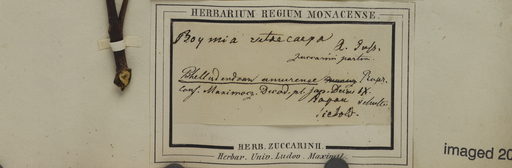 HERBARIUM REGIUM MONACENSE.
Boymia rutaecarpa A. Juss.
Zuccarini partim
Phellodendron amurense Rupr.
conf. Maximowicz. Decad. pl. jap. Decas IX.
Japan
Siebold.
HERB. ZUCCARINII.
Herbar. Univ. Ludov. Maximil.
imaged 20